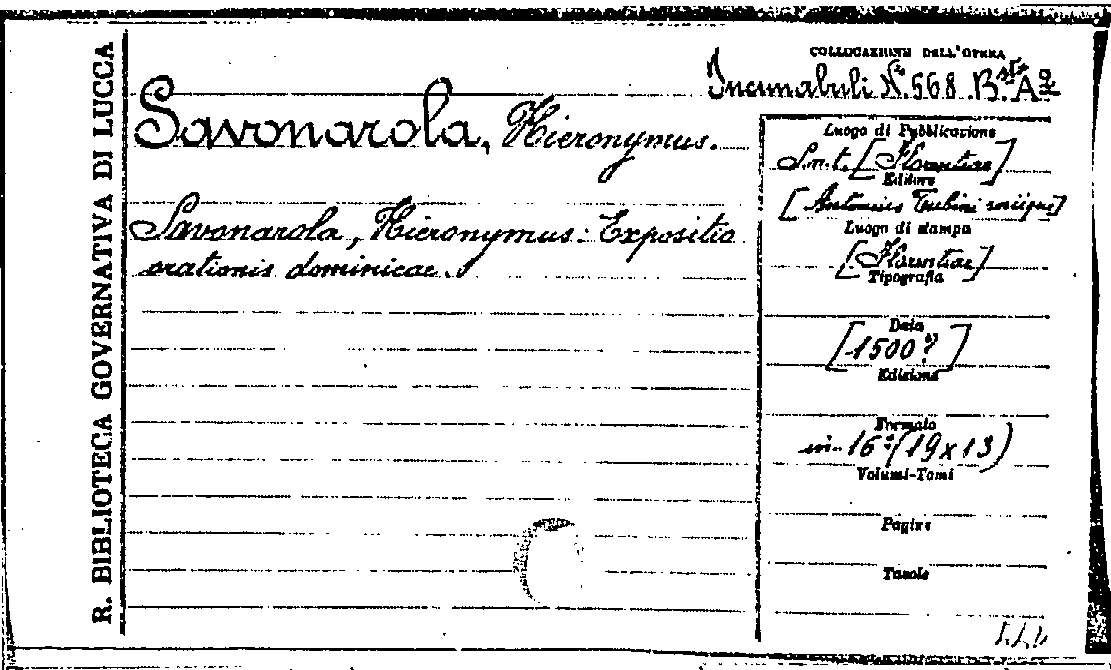 R. BIBLIOTECA GOVERNATIVA DI LUCCA
COLLOCAZIONE DELL'OPERA
Incunabuli N.º 568 B.sta A.a
Savonarola, Hieronymus.
Savonarola, Hieronymus: Expositio
orationis dominicae.
Luogo di Pubblicazione
S.n.t. [Florentiae]
Editore
[Antonius Tubini
Luogo di stampa
[Florentiae]
Tipografia
Data
[1500?]
Edizione
Formato
in-16º (19 x 13)
Volumi-Tomi
Pagine
Tavole